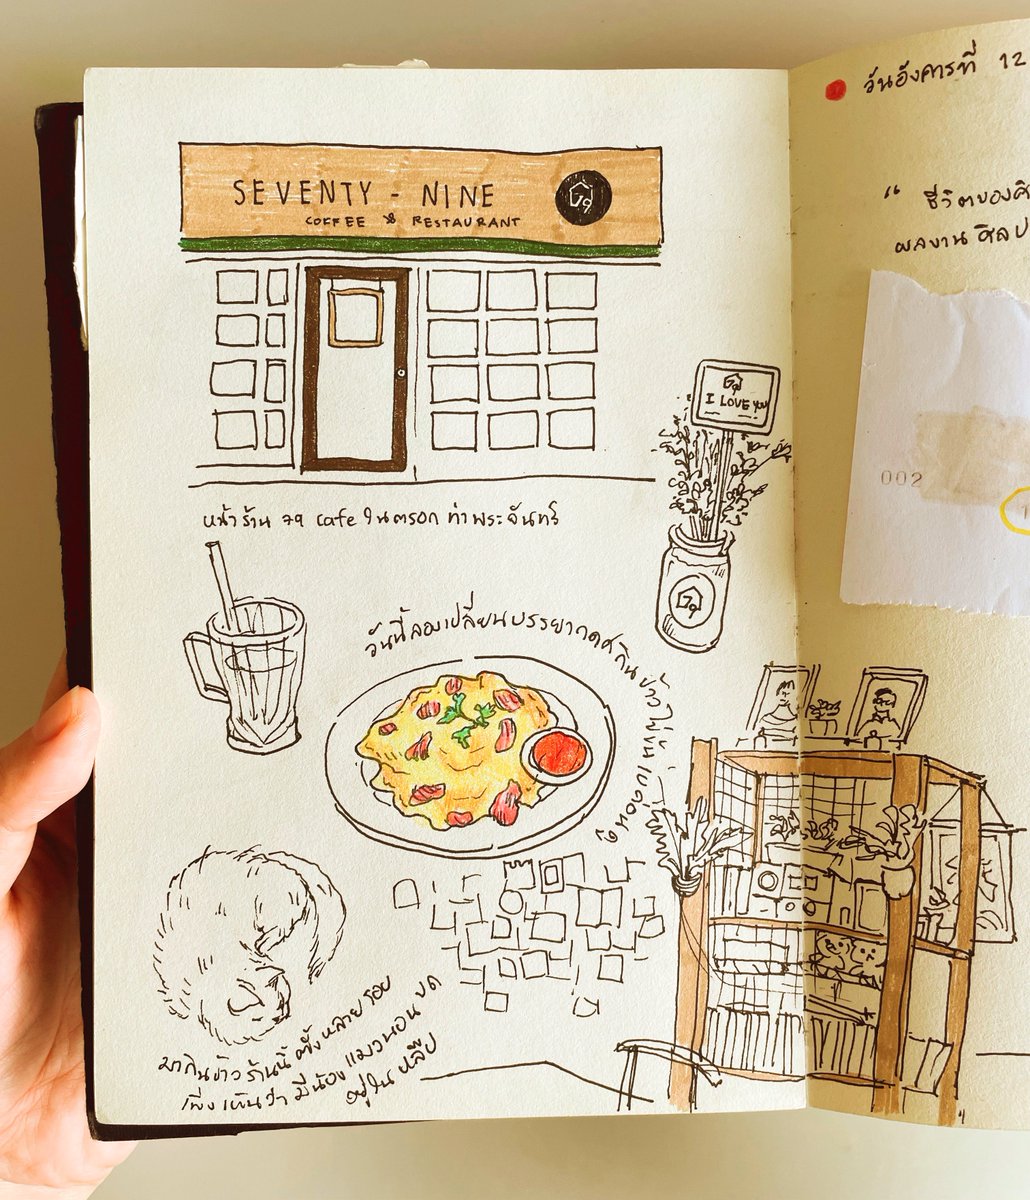 SEVENTY - NINE
COFFEE & RESTAURANT
79
79
I LOVE YOU
79
หน้าร้าน 79 cafe ในตรอก ท่าพระจันทร์
วันนี้ลองเปลี่ยนบรรยากาศกินข้าวไข่ข้นเบคอน
มากินข้าวร้านนี้ตั้งหลายรอย
เพิ่งเห็นว่ามีน้องแมวนอนขด
อยู่ในหลืบ
วันอังคารที่ 12
“ ชีวิตของศิ
ผลงานศิลป
002
1